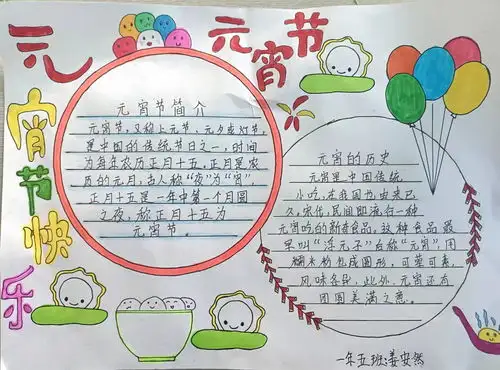 元宵节快乐
元宵节
元宵节简介
元宵节,又称上元节、元夕或灯节,
是中国的传统节日之一,时间
为每年农历正月十五。正月是农
历的元月,古人称“夜”为“宵”,
正月十五是一年中第一个月圆
之夜,称正月十五为
元宵节。
元宵的历史
元宵是中国传统
小吃,在我国也由来已
久,宋代,民间即流行一种
元宵吃的新奇食品。这种食品最
早叫“浮元子”后称“元宵”,用
糯米粉包成圆形,可荤可素,
风味各异,此外,元宵还有
团圆美满之意。
一年五班:姜安然